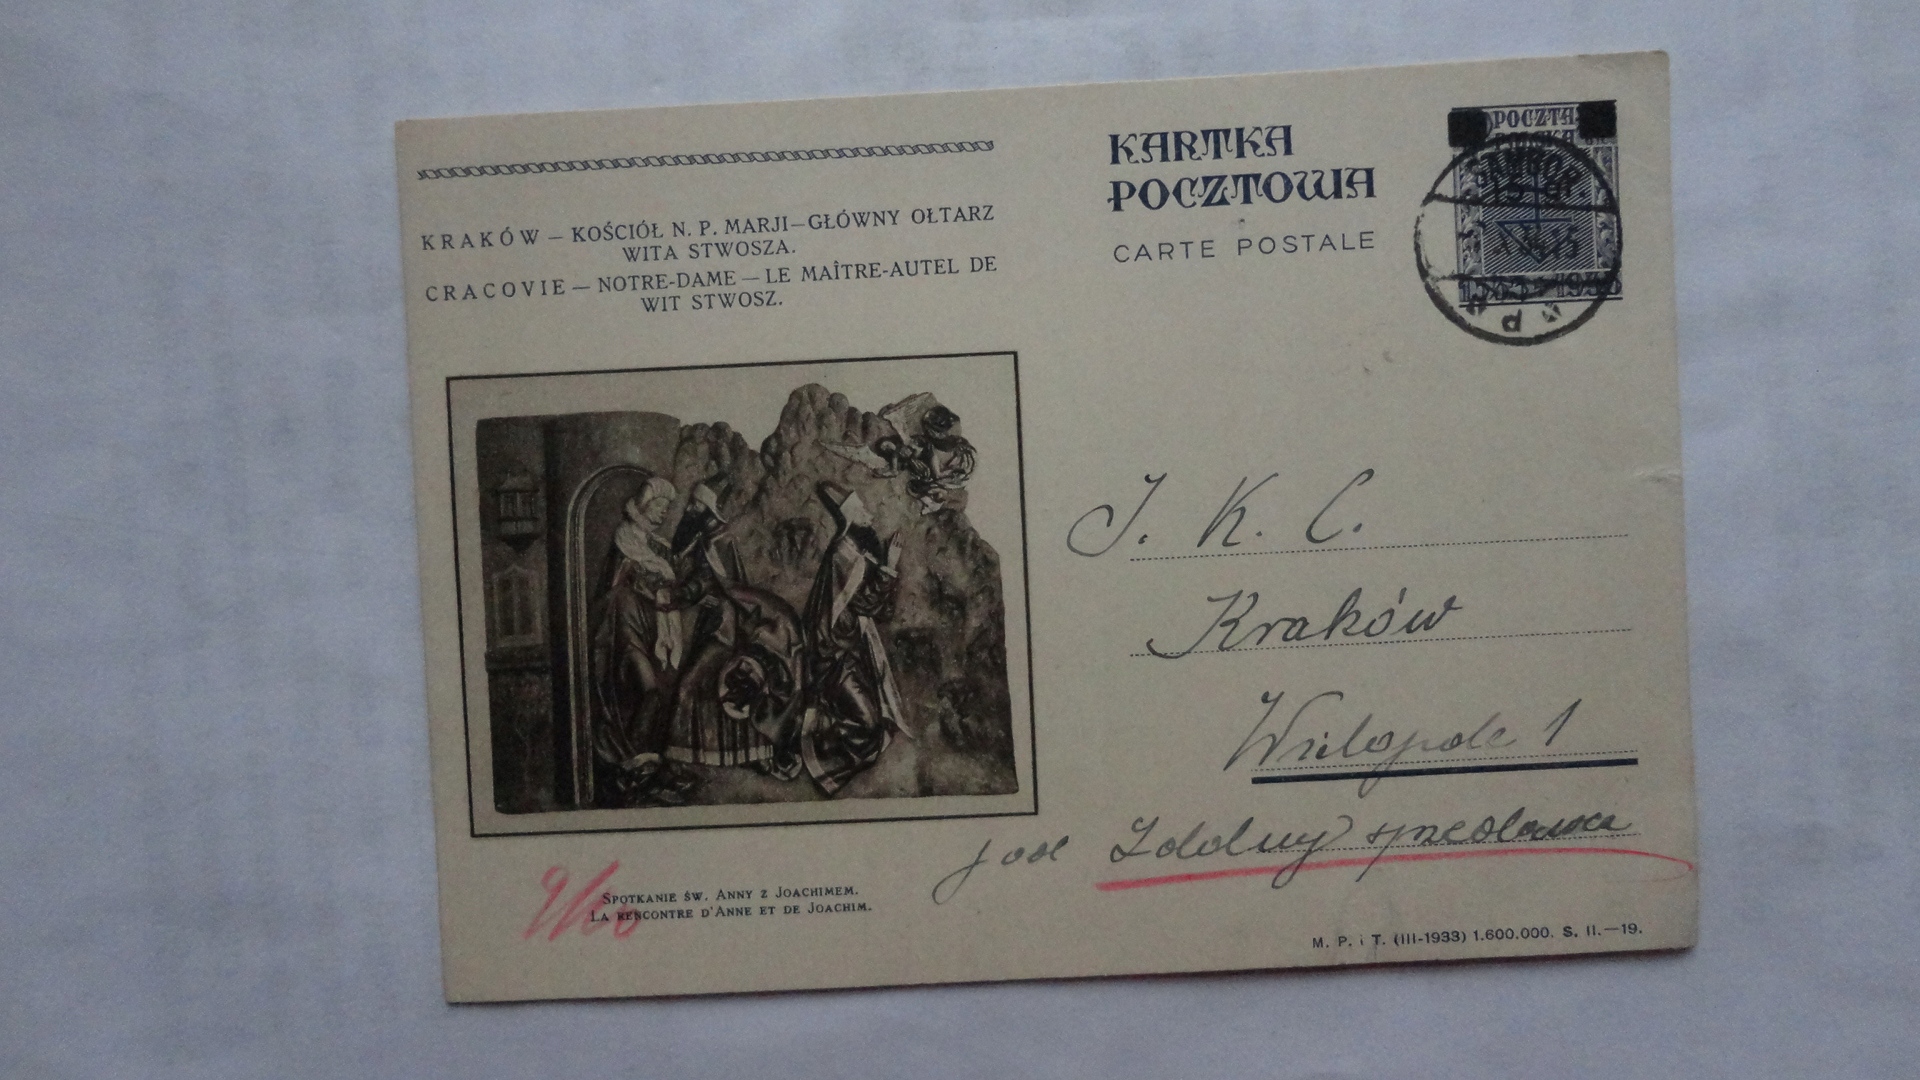 KRAKÓW – KOŚCIÓŁ N. P. MARJI–GŁÓWNY OŁTARZ
WITA STWOSZA.
CRACOVIE – NOTRE-DAME – LE MAÎTRE-AUTEL DE
WIT STWOSZ.
KARTKA
POCZTOWA
CARTE POSTALE
POCZTA
SAMBOR
d
J. K. C.
Kraków
Wielopole 1
pod Zdolny
SPOTKANIE ŚW. ANNY Z JOACHIMEM.
LA RENCONTRE D'ANNE ET DE JOACHIM.
M. P. i T. (III-1933) 1.600.000. S. II.—19.